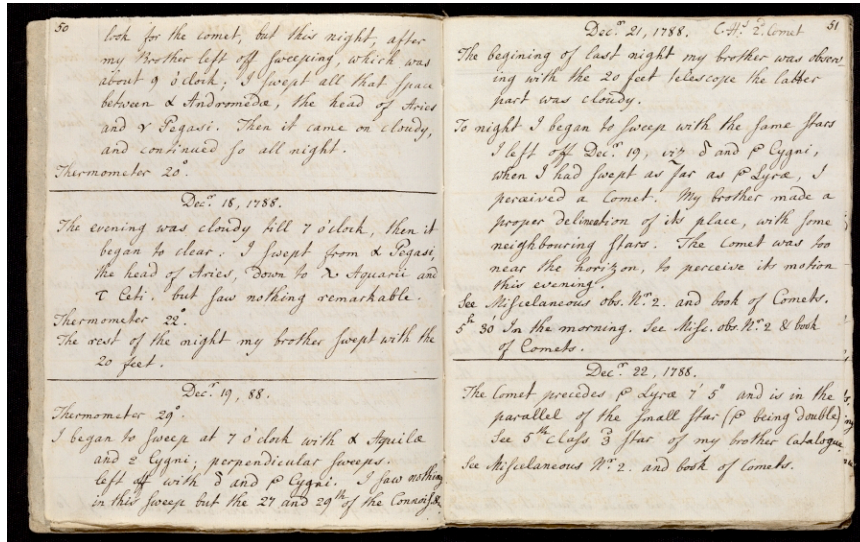 50
look for the comet, but this night, after
my Brother left off sweeping, which was
about 9 o'clock; I swept all that space
between α Andromedæ, the head of Aries
and γ Pegasi. Then it came on cloudy,
and continued so all night.
Thermometer 20°.
Dec.r 18, 1788.
The evening was cloudy till 7 o'clock, then it
began to clear. I swept from α Pegasi,
the head of Aries, down to λ Aquarii and
τ Ceti. but saw nothing remarkable.
Thermometer 22°.
The rest of the night my brother swept with the
20 feet.
Dec.r 19, 88.
Thermometer 29°
I began to sweep at 7 o'clock with α Aquilæ
and 2 Cygni; perpendicular sweeps.
left off with δ and β Cygni. I saw nothing
in this sweep but the 27 and 29th of the Connoiss.
51
Dec.r 21, 1788. C.H.s 2.d Comet
The begining of last night my brother was observ
ing with the 20 feet telescope the latter
part was cloudy.
To night I began to sweep with the same stars
I left off Dec.r 19, viz δ and β Cygni,
when I had swept as far as β Lyræ, I
perceived a Comet. My brother made a
proper delineation of its place, with some
neighbouring stars. The Comet was too
near the horizon, to perceive its motion
this evening.
See Miscelaneous obs. N.r 2. and book of Comets.
5h 30' In the morning. See Misc. obs. N.r 2 & book
of Comets.
Dec.r 22, 1788.
The Comet precedes β Lyræ 7' 5" and is in the
parallel of the small star (β being double)
See 5th class 3 star of my brother catalogue
See Miscelaneous N.r 2. and book of Comets.